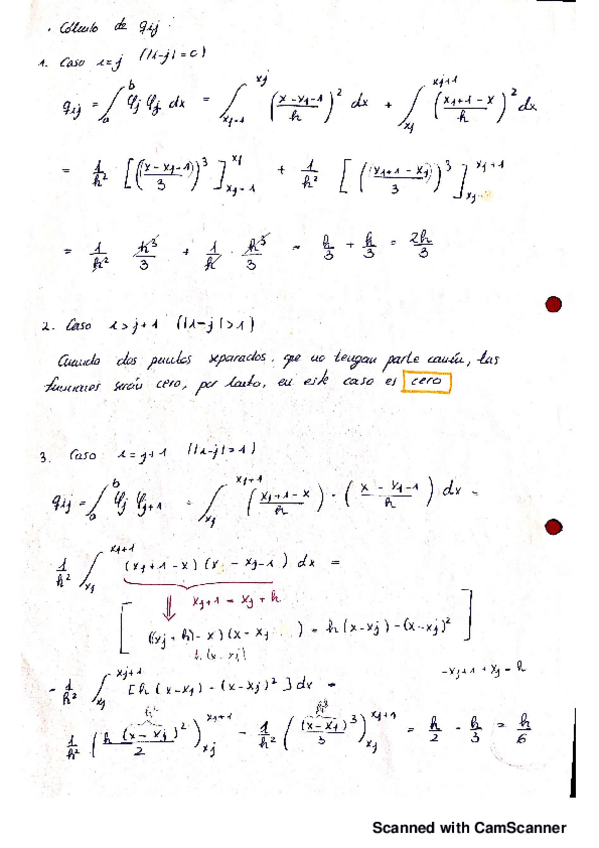 · Cálculo de gij
1. Caso i=j (|i-j|=0)
gij = ∫_a^b φj φj dx = ∫_{xj-1}^{xj} ((x-xj-1)/h)² dx + ∫_{xj}^{xj+1} ((xj+1-x)/h)² dx
= 1/h² · [((x-xj-1)³/3)]_{xj-1}^{xj} + 1/h² [((xj+1-xj)³/3)]_{xj}^{xj+1}
= 1/h² h³/3 + 1/h · h³/3 = h/3 + h/3 = 2h/3
2. Caso i>j+1 (|i-j|>1)
Cuando dos puntos separados, que no tengan parte común, las
funciones serán cero, por tanto, en este caso es cero
3. Caso i=j+1 (|i-j|=1)
gij = ∫_a^b φj φj+1 = ∫_{xj}^{xj+1} ((xj+1-x)/h) · ((x-xj-1)/h) dx =
1/h² ∫_{xj}^{xj+1} (xj+1-x)(x-xj-1) dx =
⇓ xj+1 = xj + h
[((xj+h)-x)(x-xj) = h(x-xj)-(x-xj)²]
h.(x-xj)
-xj+1+xj=h
= 1/h² ∫_{xj}^{xj+1} [h(x-xj)-(x-xj)²] dx =
1/h² (h (x-xj)²/2)_{xj}^{xj+1} - 1/h² ((x-xj)³/3)_{xj}^{xj+1} = h/2 - h/3 = h/6
Scanned with CamScanner